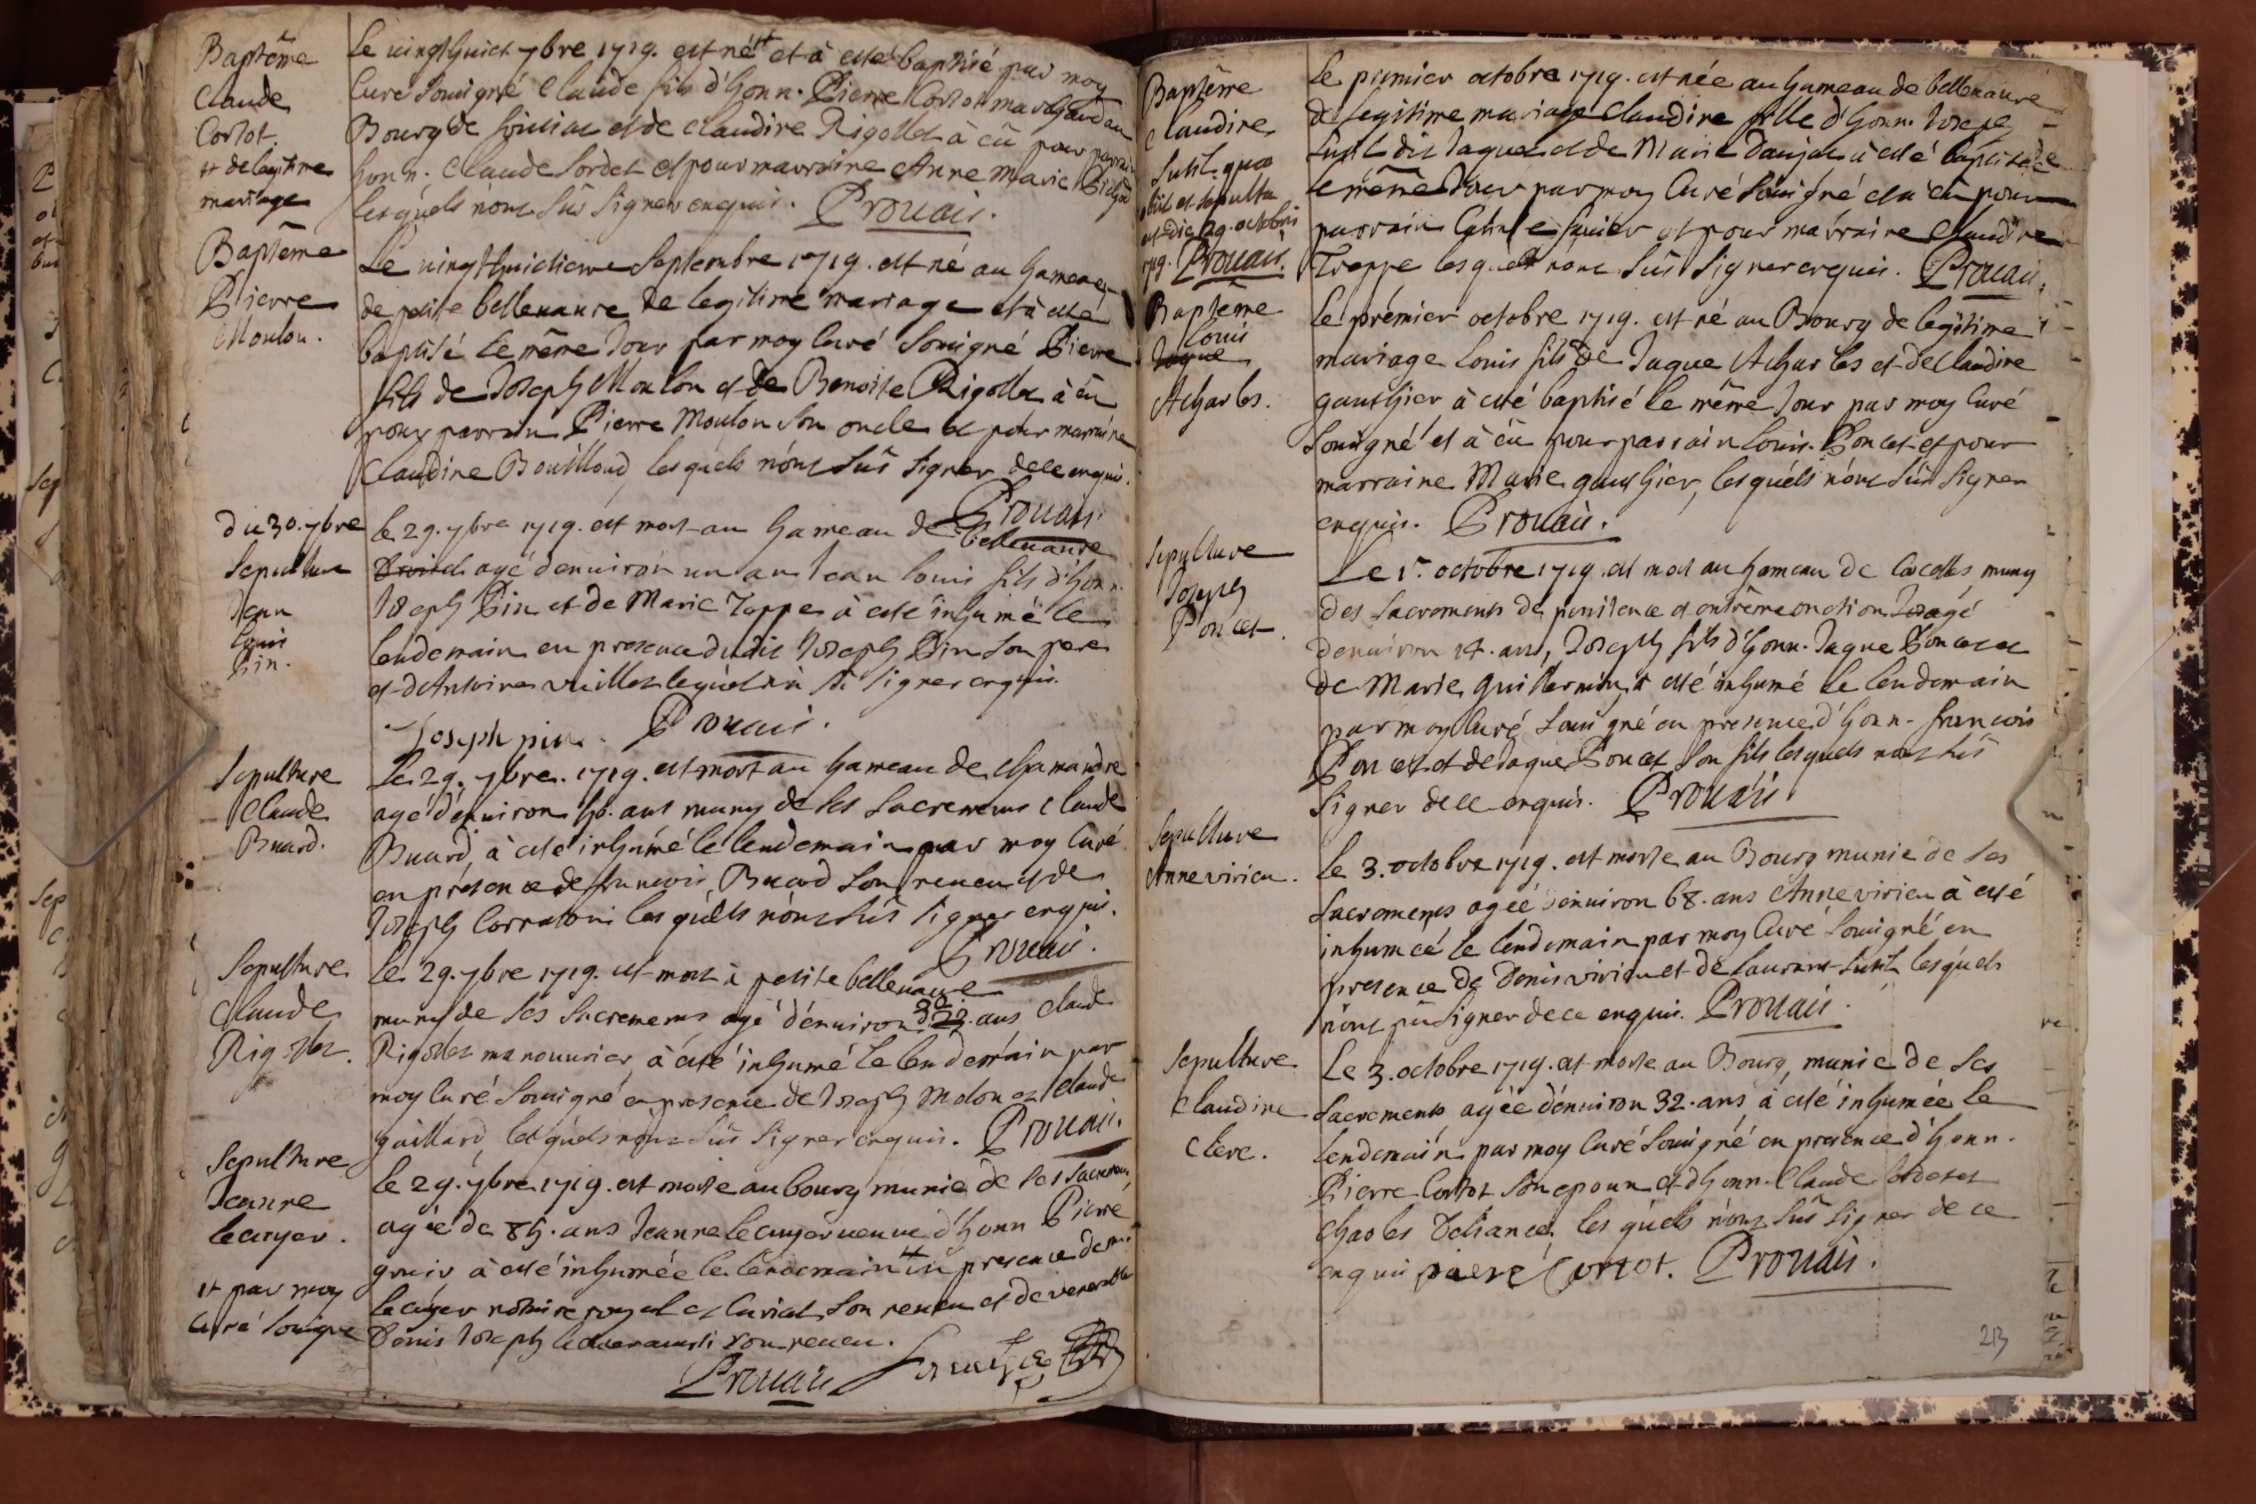 Baptême
Claude
Cortot
++ de legitime
mariage
Le vingt huict 7bre 1719. est né ++ et à esté baptisé par moy
Curé souigné Claude fils d'honn. Pierre Cortot marchand au
Bourg de et de Claudine Rigollet à eû pour parrain
honn. Claude Sordet et pour marraine Anne Marie
lesquels n'ont sûs signer enquis. Prouais.
Baptême
Pierre
Moulon.
Le vingt huictieme Septembre 1719. est né au hameau
de petite bellenaure de legitime mariage et à esté
baptisé le même Jour par moy Curé souigné Pierre
fils de Joseph Moulon et de Benoite Rigollet à eû
pour parrain Pierre Moulon son oncle et pour marraine
Claudine Bouilloud, lesquels n'ont sûs signer de ce enquis.
Prouais
du 30. 7bre
Sepulture
Jean
Louis
Pin.
le 29. 7bre 1719. est mort au hameau de bellenaure
agé d'enuiron un an Jean Louis fils d'honn.
Joseph Pin et de Marie Toppe à esté inhumé le
lendemain en presence dudit Joseph Pin son pere
et d'Antoine vuillot lequel n'a sû signer enquis.
Joseph pin. Prouais.
Sepulture
Claude
Buard.
le 29. 7bre. 1719. est mort au hameau de Chamandré
agé d'enuiron ans muny de ses sacremens Claude
Buard, à esté inhumé le lendemain par moy Curé
en présence de francois Buard son neueu et de
Joseph lesquels n'ont sûs signer enquis.
Prouais.
Sepulture
Claude
Rigollet.
le 29. 7bre 1719. est mort à petite bellenaure
muny de ses Sacremens agé d'enuiron ans Claude
Rigollet manouurier, à esté inhumé le lendemain par
moy Curé souigné en presence de Joseph Molon et Claude
gaillard, lesquels n'ont sûs signer enquis. Prouais.
Sepulture
Jeanne
lecuyer.
++ par moy
Curé souigné
le 29. 7bre 1719. est morte au bourg munie de ses sacremens
agée de 85. ans Jeanne lecuyer ueuue d'honn Pierre
à esté inhumée le lendemain ++ en presence de
lecuyer notaire royal et Curial son neueu et de venerable
Denis Joseph son neueu.
Prouais
Baptême
Claudine
Sutil. quæ
obiit et sepulta
est die 29. octobris
1719. Prouais.
Le premier octobre 1719. est née au hameau de bellenaure
de legitime mariage Claudine fille d'honn. Joseph
Sutil dit Jaque et de Marie à esté baptisée
le même Jour par moy Curé souigné et à eû pour
parrain et pour marraine Claudine
Troppe lesquels n'ont sûs signer enquis. Prouais.
Baptême
Louis
Jaque
Acharles.
Le prémier octobre 1719. est né au Bourg de legitime
mariage Louis fils de Jaque Acharles et de Claudine
gauthier à esté baptisé le même Jour par moy Curé
souigné et à eû pour parrain Louis Poncet et pour
marraine Marie gauthier, lesquels n'ont sûs signer
enquis. Prouais.
Sepulture
Joseph
Poncet.
Le 1r. octobre 1719. est mort au hameau de muny
des sacremens de penitence et extrême onction agé
d'enuiron 14. ans, Joseph fils d'honn. Jaque Poncet et
de Marie Guillermin, à esté inhumé le lendemain
par moy Curé souigné en presence d'honn. francois
Poncet et de Jaque Poncet son fils lesquels n'ont sûs
signer de ce enquis. Prouais
Sepulture
Anne virieu.
Le 3. octobre 1719. est morte au Bourg munie de ses
sacremens agée d'enuiron 68. ans Anne virieu à esté
inhumeé le lendemain par moy Curé souigné en
presence de Denis virieu et de laurent Sutil, lesquels
n'ont pû signer de ce enquis. Prouais.
Sepulture
Claudine
Clere.
Le 3. octobre 1719. est morte au Bourg, munie de ses
sacremens agée d'enuiron 32. ans à esté inhumée le
lendemain par moy Curé souigné en presence d'honn.
Pierre Cortot son epoux et d'honn. Claude Sordet et
Charles lesquels n'ont sûs signer de ce
enquis piere Cortot. Prouais.
213